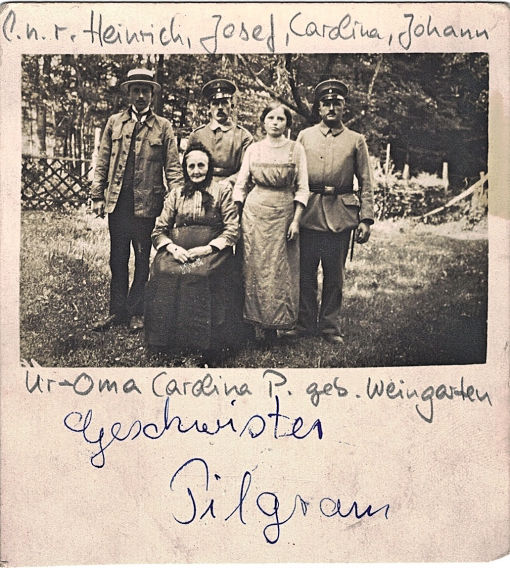 l.n.r. Heinrich, Josef, Carolina, Johann
Ur-Oma Carolina P. geb. Weingarten
Geschwister
Pilgram